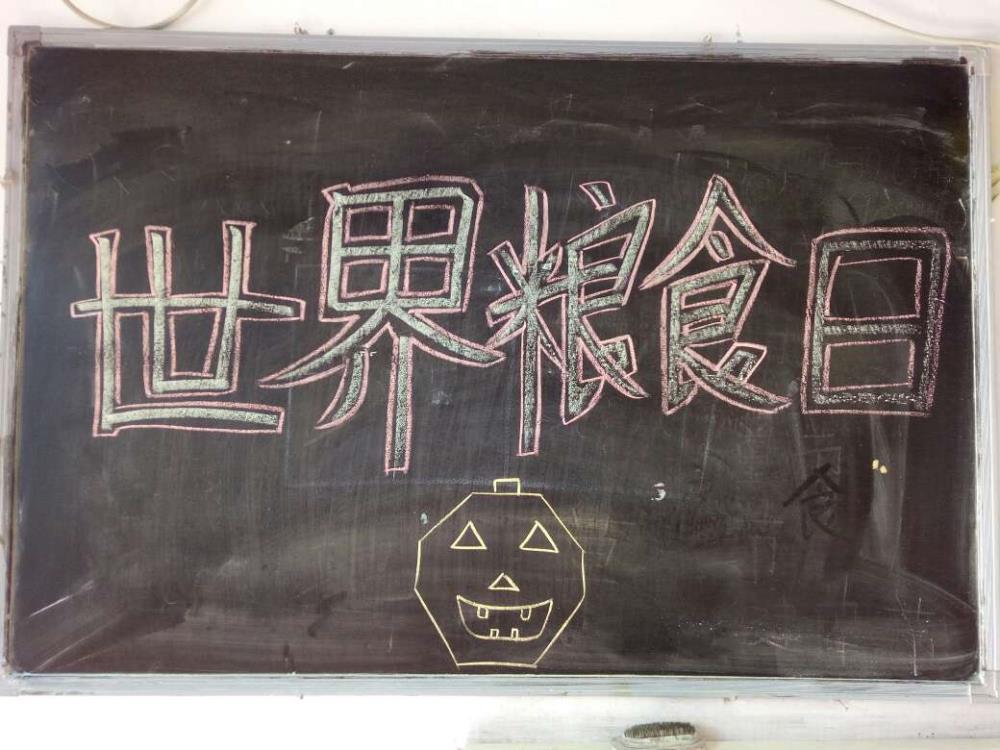 世界粮食日
食